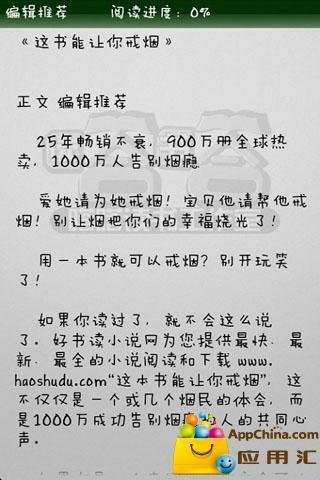 编辑推荐 阅读进度：0%
《这书能让你戒烟》
正文 编辑推荐
25年畅销不衰，900万册全球热
卖，1000万人告别烟瘾
爱她请为她戒烟！宝贝他请帮他戒
烟！别让烟把你们的幸福烧光了！
用一本书就可以戒烟？别开玩笑
了！
如果你读过了，就不会这么说
了。好书读小说网为您提供最快、最
新、最全的小说阅读和下载 www.
haoshudu.com“这本书能让你戒烟”，这
不仅仅是一个或几个烟民的体会，而
是1000万成功告别烟瘾的人的共同心
声。
AppChina.com
应用汇